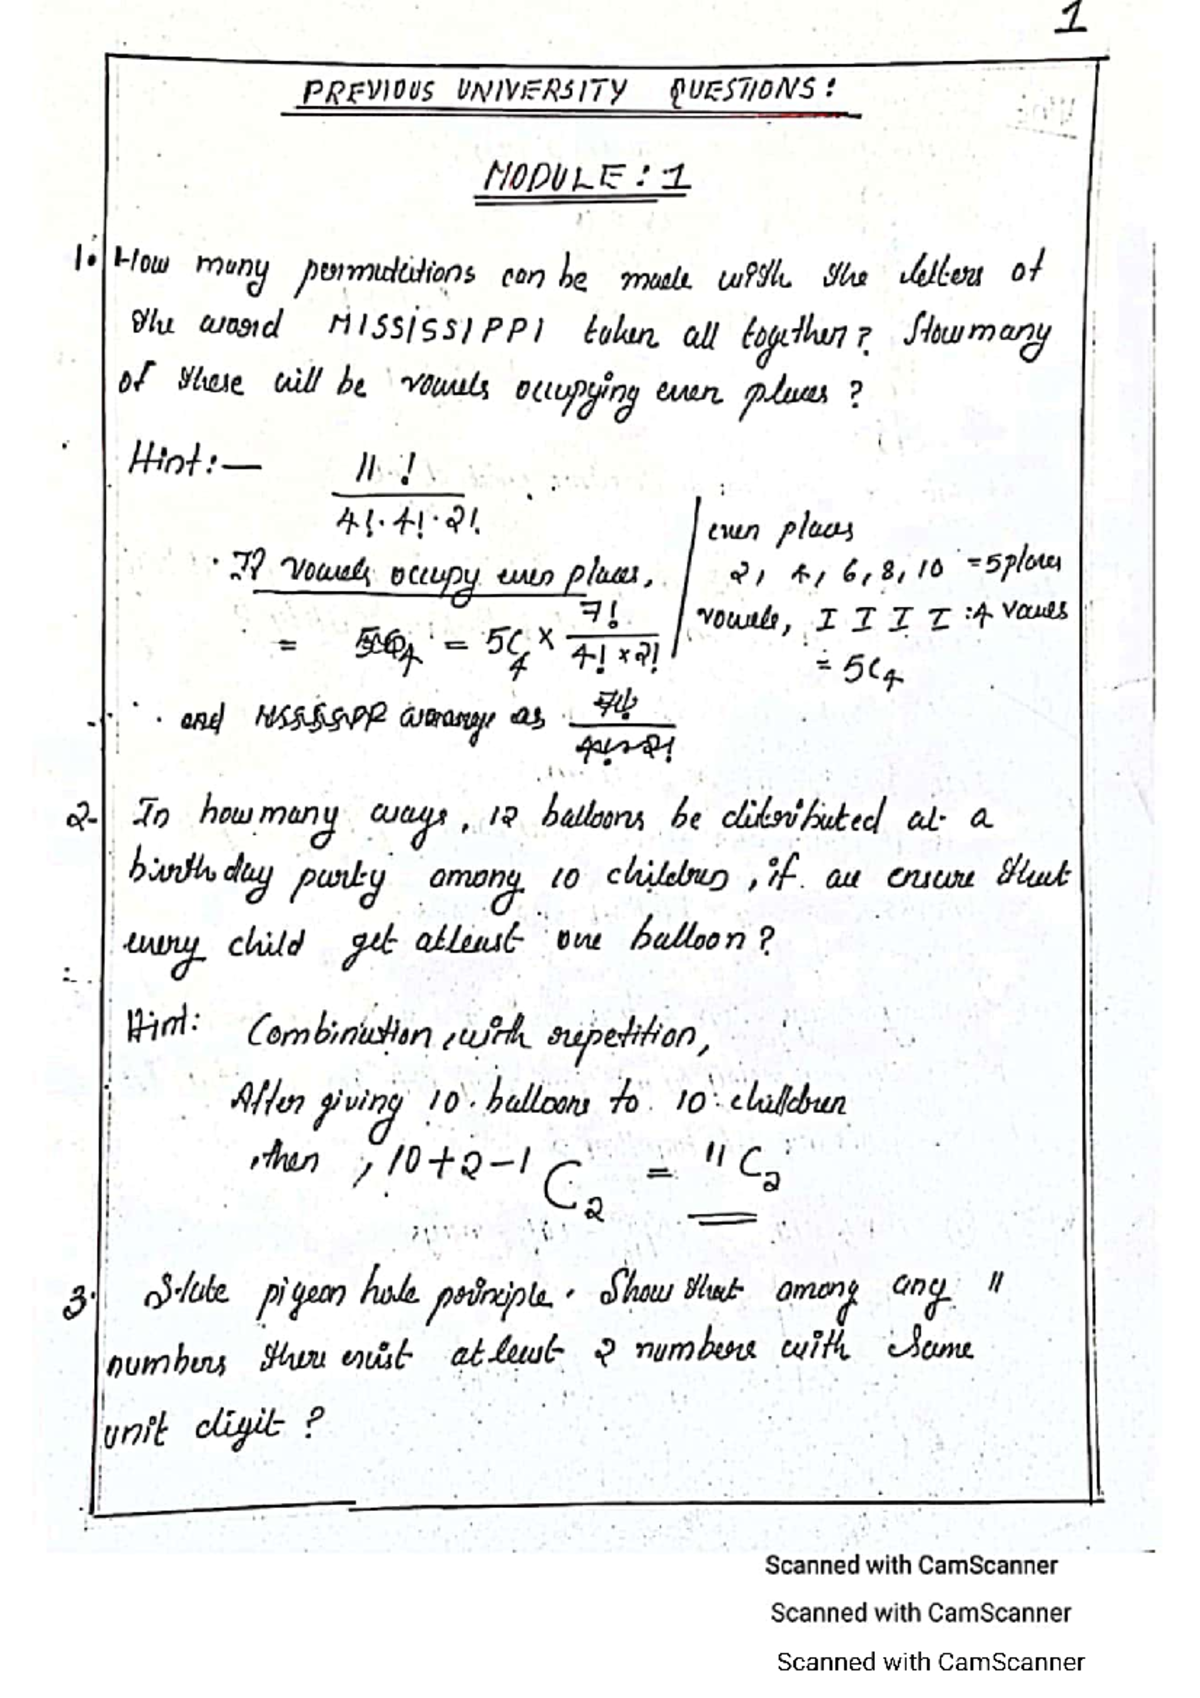 1
PREVIOUS UNIVERSITY QUESTIONS:
MODULE: 1
1. How many permutations can be made with the letters of
the word MISSISSIPPI taken all together? How many
of these will be vowels occupying even places?
Hint:— 11!
4!.4!.2!
If vowels occupy even places,
= 5C4 = 5C4 × 7!
4!×2!
and MSSSSPP arrange as 7!
4!×2!
even places
2, 4, 6, 8, 10 =5places
vowels, I I I I :4
= 5C4
2. In how many ways, 12 balloons be distributed at a
birthday party among 10 children, if we ensure that
every child get atleast one balloon?
Hint: Combination with repetition,
After giving 10 balloons to 10 children
then, 10+2-1C2 = 11C2
3. State pigeon hole principle. Show that among any 11
numbers there exist atleast 2 numbers with same
unit digit?
Scanned with CamScanner
Scanned with CamScanner
Scanned with CamScanner